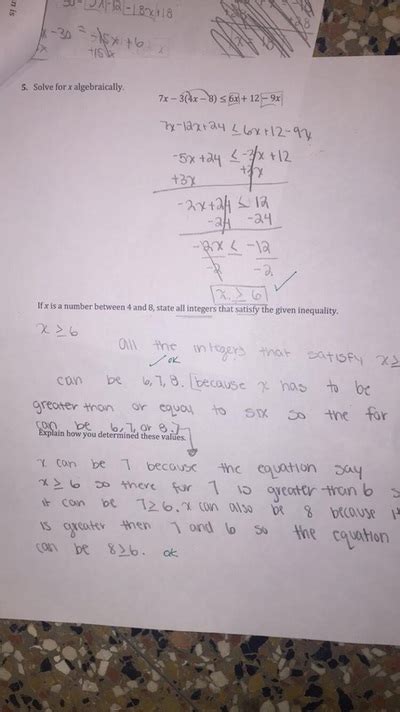 x - 30 = -15x + 6
+15x
5. Solve for x algebraically.
7x - 3(4x - 8) ≤ 6x + 12 - 9x
7x-12x+24 ≤ 6x+12-9x
-5x+24 ≤ -3x+12
+3x +3x
-2x+24 ≤ 12
-24 -24
-2x ≤ -12
-2 -2
x ≥ 6 ✓
If x is a number between 4 and 8, state all integers that satisfy the given inequality.
x ≥ 6
all the integers that satisfy x≥
✓ok
can be 6,7,8. because x has to be
greater than or equal to six so the for
can be 6,7, or 8.
Explain how you determined these values.
x can be 7 because the equation say
x ≥ 6 so there for 7 is greater than 6 s
it can be 7≥6. x can also be 8 because it
is greater then 7 and 6 so the equation
can be 8≥6. ok